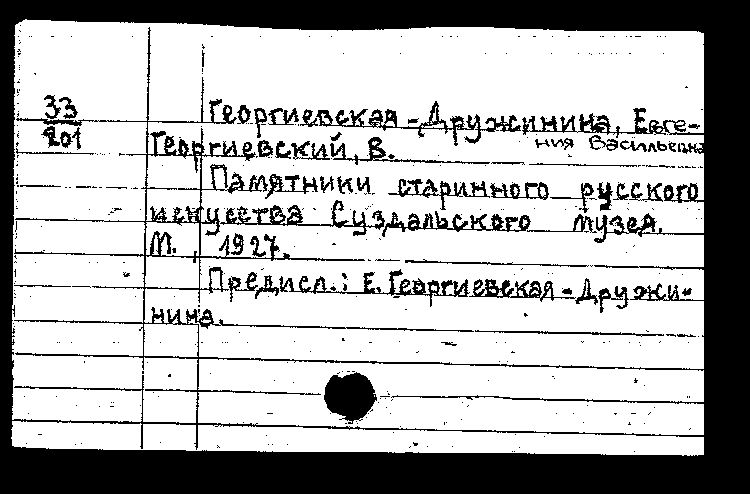 33
801
Георгиевская-Дружинина, Евге-
ния Васильевна
Георгиевский, В.
Памятники старинного русского
искусства Суздальского музея.
М., 1927.
Предисл.: Е. Георгиевская-Дружи-
нина.